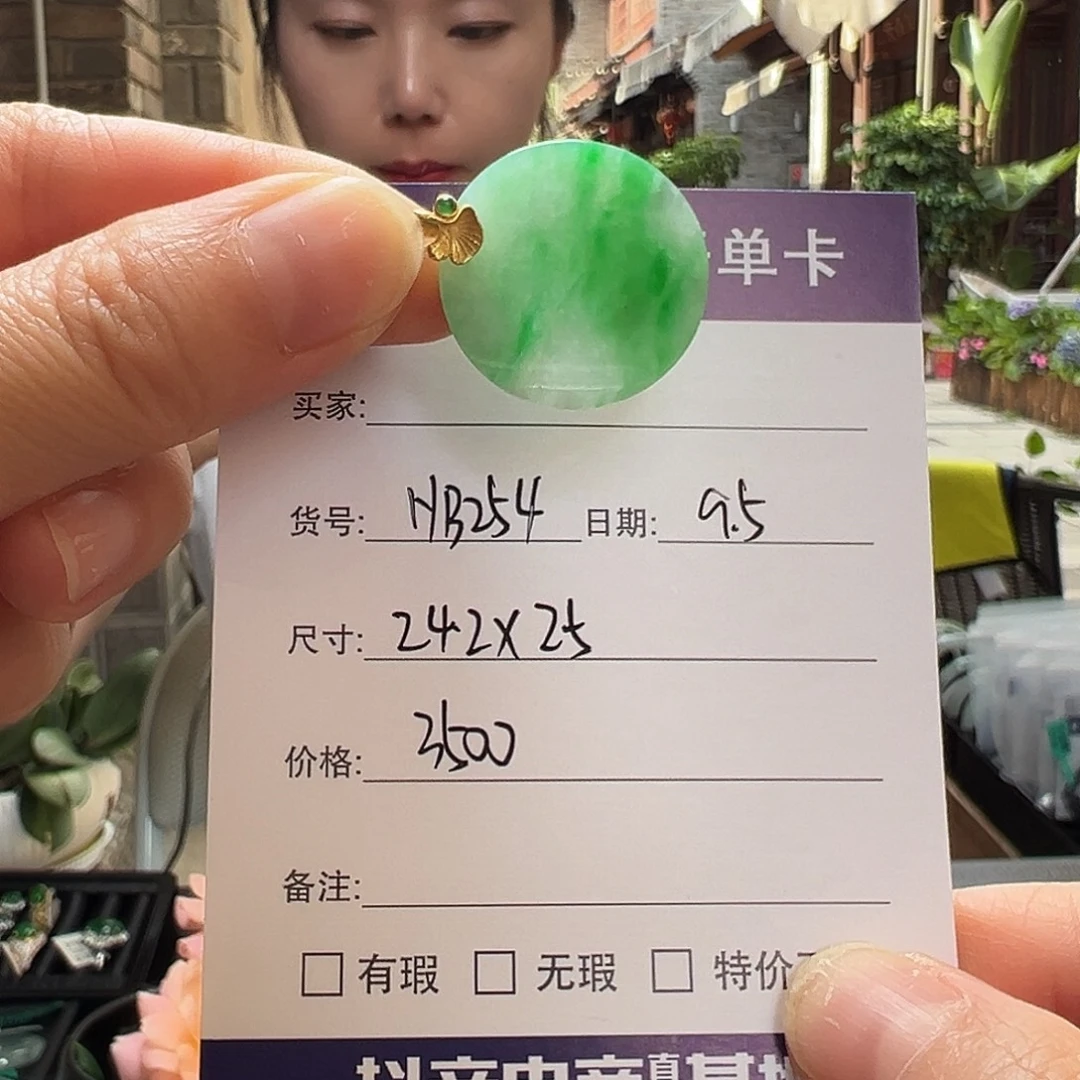 单卡
买家:
货号: HB254 日期: 9.5
尺寸: 242X25
价格: 3500
备注:
□ 有瑕 □ 无瑕 □ 特价
抖音电商直基地